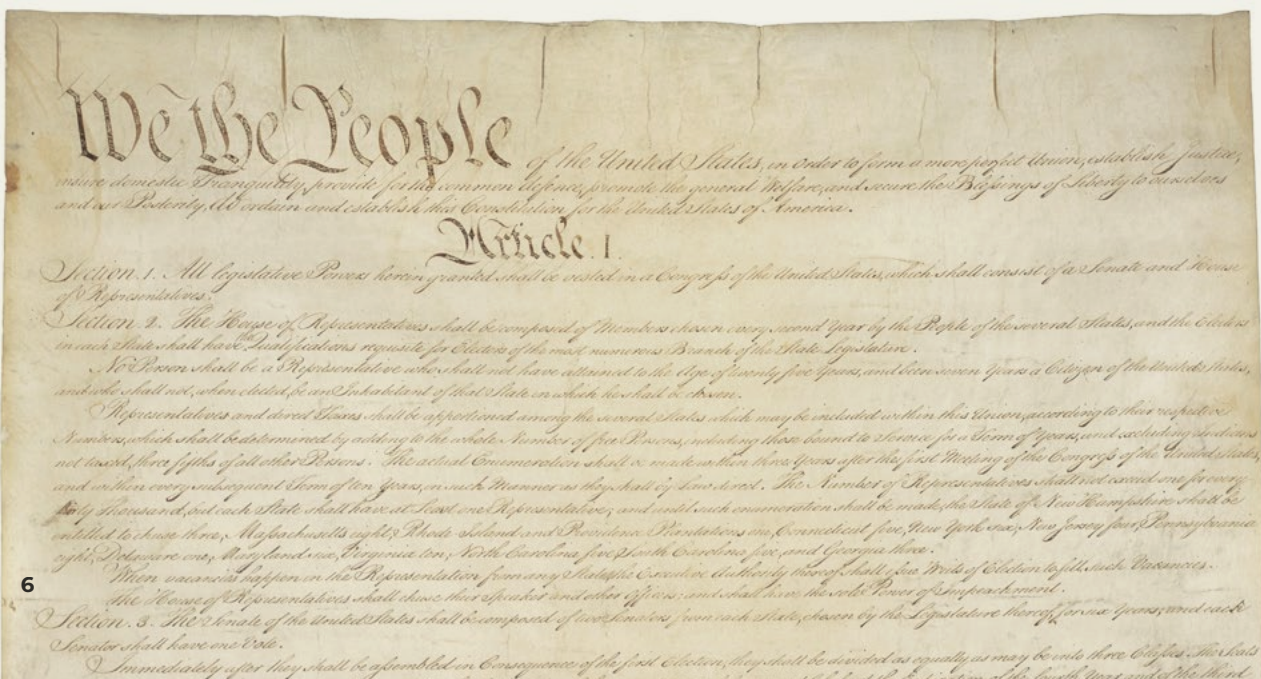 We the People of the United States, in Order to form a more perfect Union, establish Justice,
insure domestic Tranquility, provide for the common defence, promote the general Welfare, and secure the Blessings of Liberty to ourselves
and our Posterity, do ordain and establish this Constitution for the United States of America.
Article. I.
Section. 1. All legislative Powers herein granted shall be vested in a Congress of the United States, which shall consist of a Senate and House
of Representatives.
Section. 2. The House of Representatives shall be composed of Members chosen every second Year by the People of the several States, and the Electors
in each State shall have the Qualifications requisite for Electors of the most numerous Branch of the State Legislature.
No Person shall be a Representative who shall not have attained to the Age of twenty five Years, and been seven Years a Citizen of the United States,
and who shall not, when elected, be an Inhabitant of that State in which he shall be chosen.
Representatives and direct Taxes shall be apportioned among the several States which may be included within this Union, according to their respective
Numbers, which shall be determined by adding to the whole Number of free Persons, including those bound to Service for a Term of Years, and excluding Indians
not taxed, three fifths of all other Persons. The actual Enumeration shall be made within three Years after the first Meeting of the Congress of the United States,
and within every subsequent Term of ten Years, in such Manner as they shall by Law direct. The Number of Representatives shall not exceed one for every
thirty Thousand, but each State shall have at Least one Representative; and until such enumeration shall be made, the State of New Hampshire shall be
entitled to chuse three, Massachusetts eight, Rhode Island and Providence Plantations one, Connecticut five, New York six, New Jersey four, Pennsylvania
eight, Delaware one, Maryland six, Virginia ten, North Carolina five, South Carolina five, and Georgia three.
When vacancies happen in the Representation from any State, the Executive Authority thereof shall issue Writs of Election to fill such Vacancies.
The House of Representatives shall chuse their Speaker and other Officers; and shall have the sole Power of Impeachment.
6
Section. 3. The Senate of the United States shall be composed of two Senators from each State, chosen by the Legislature thereof, for six Years; and each
Senator shall have one Vote.
Immediately after they shall be assembled in Consequence of the first Election, they shall be divided as equally as may be into three Classes. The Seats